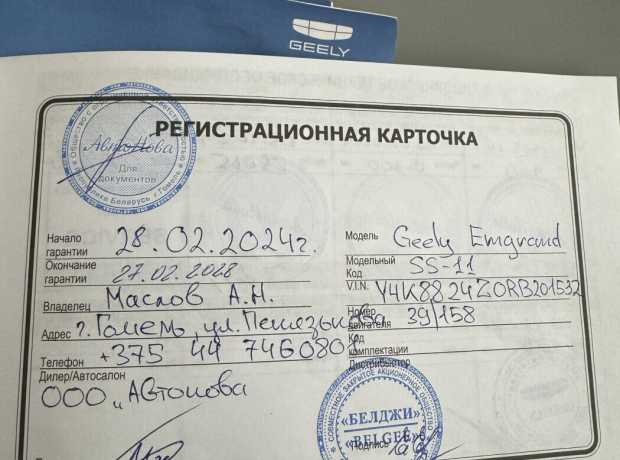 GEELY
РЕГИСТРАЦИОННАЯ КАРТОЧКА
АвтоНова
Для документов
Начало гарантии 28.02.2024г.
Окончание гарантии 27.02.2028
Владелец Маслов А.Н.
Адрес г. Гомель, ул.
Телефон +375 44 7460801
Дилер/Автосалон
ООО „Автонова
Модель Geely Emgrand
Модельный Код SS-11
V.I.N. Y4K8824Z0RB201532
Номер двигателя 39/158
Код комплектации
Дистрибьютор
СОВМЕСТНОЕ ЗАКРЫТОЕ АКЦИОНЕРНОЕ ОБЩЕСТВО
«БЕЛДЖИ»
«BELGEE»
Подпись